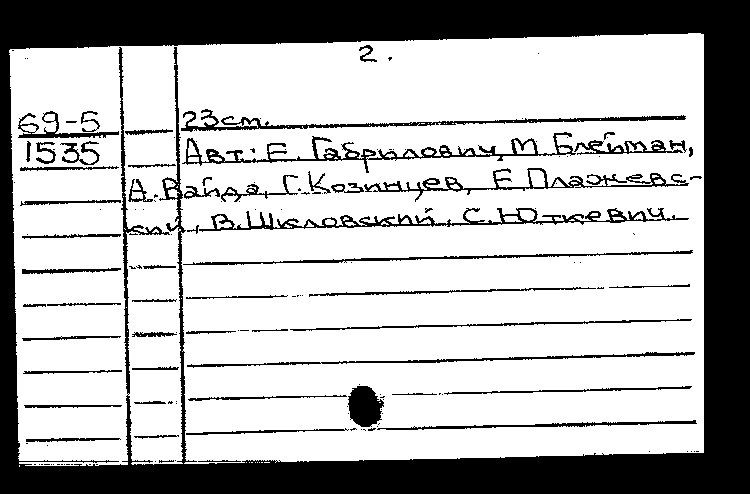 2.
69-5 23см.
1535 Авт.: Е. Габрилович, М. Блейман,
А. Вайда, Г. Козинцев, Е. Плажевс-
кий, В. Шкловский, С. Юткевич.